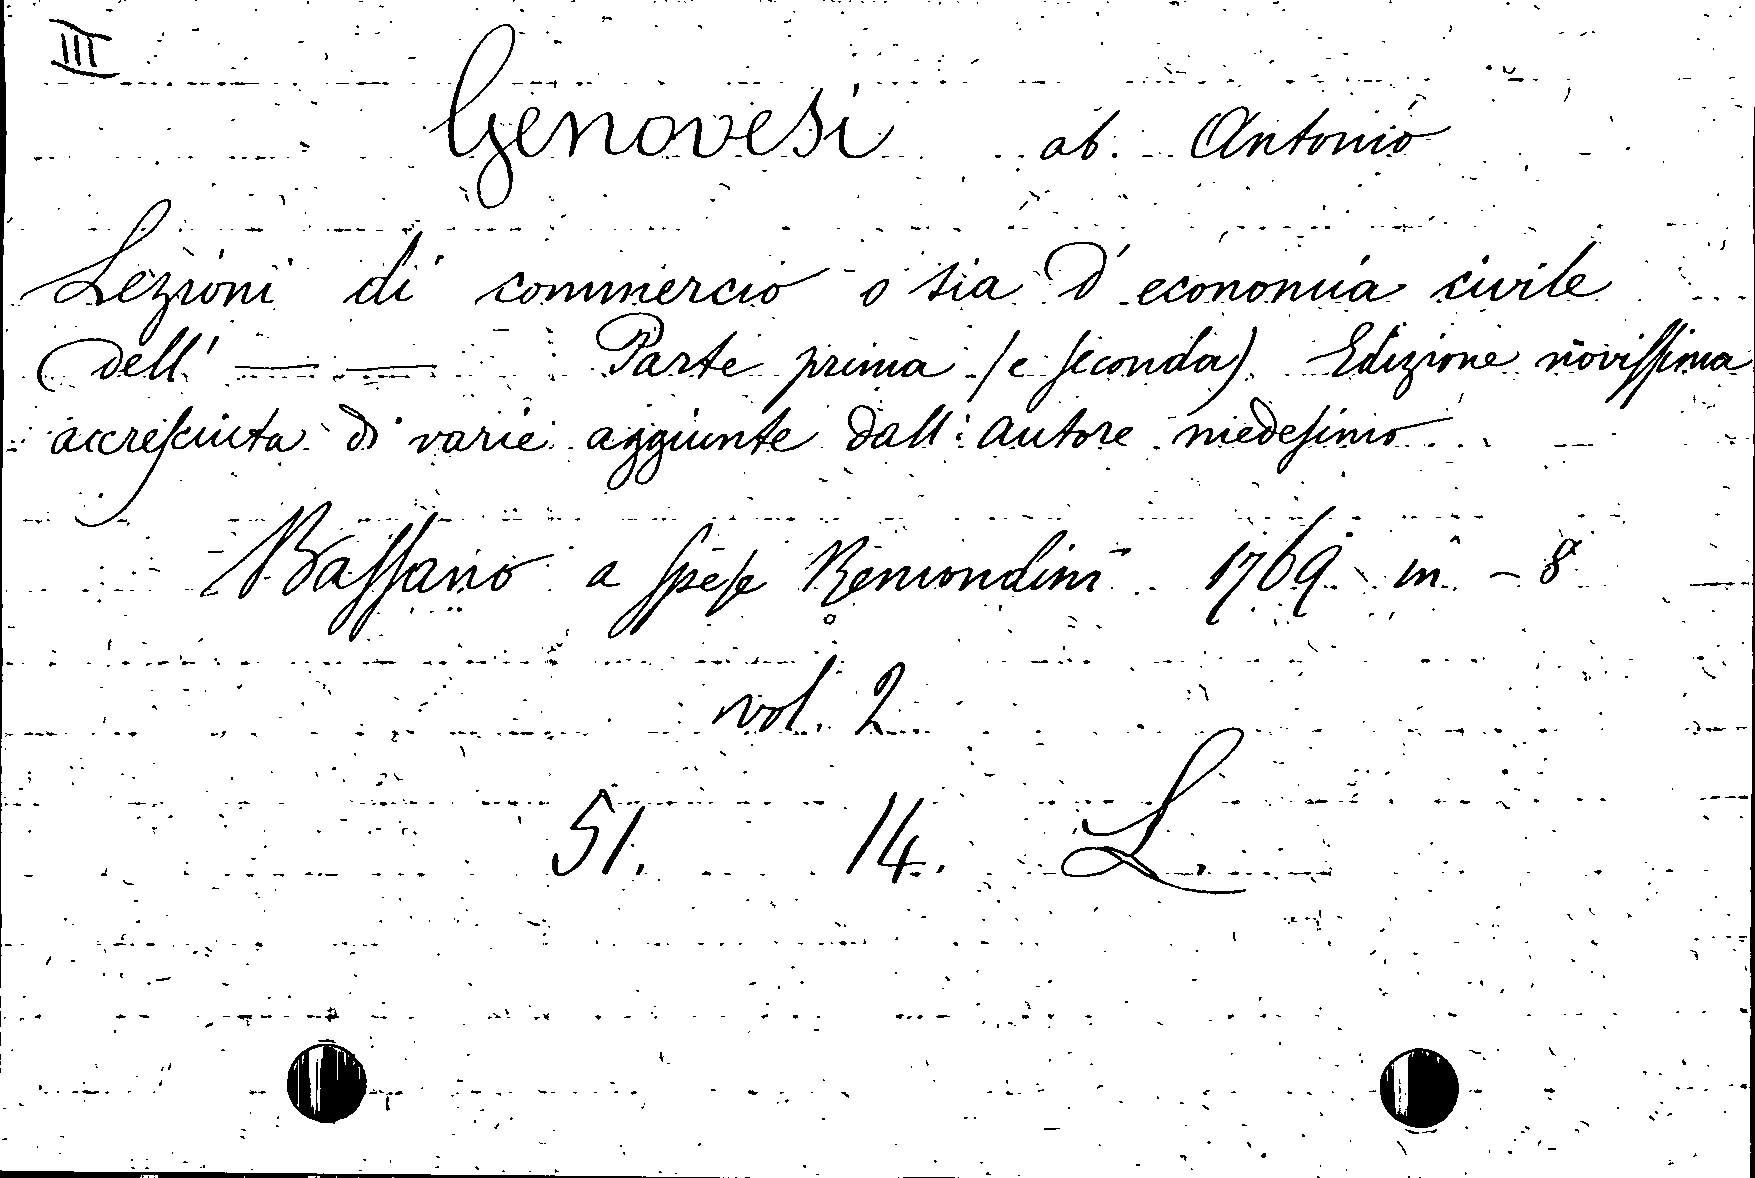 III
Genovesi ab. Antonio
Lezioni di commercio o sia d'economia civile
dell' —— —— Parte prima (e seconda). Edizione novissima
accresciuta di varie aggiunte dall' autore medesimo
Bassano a spese Remondini 1769 in - 8°
vol. 2
51. 14. L.